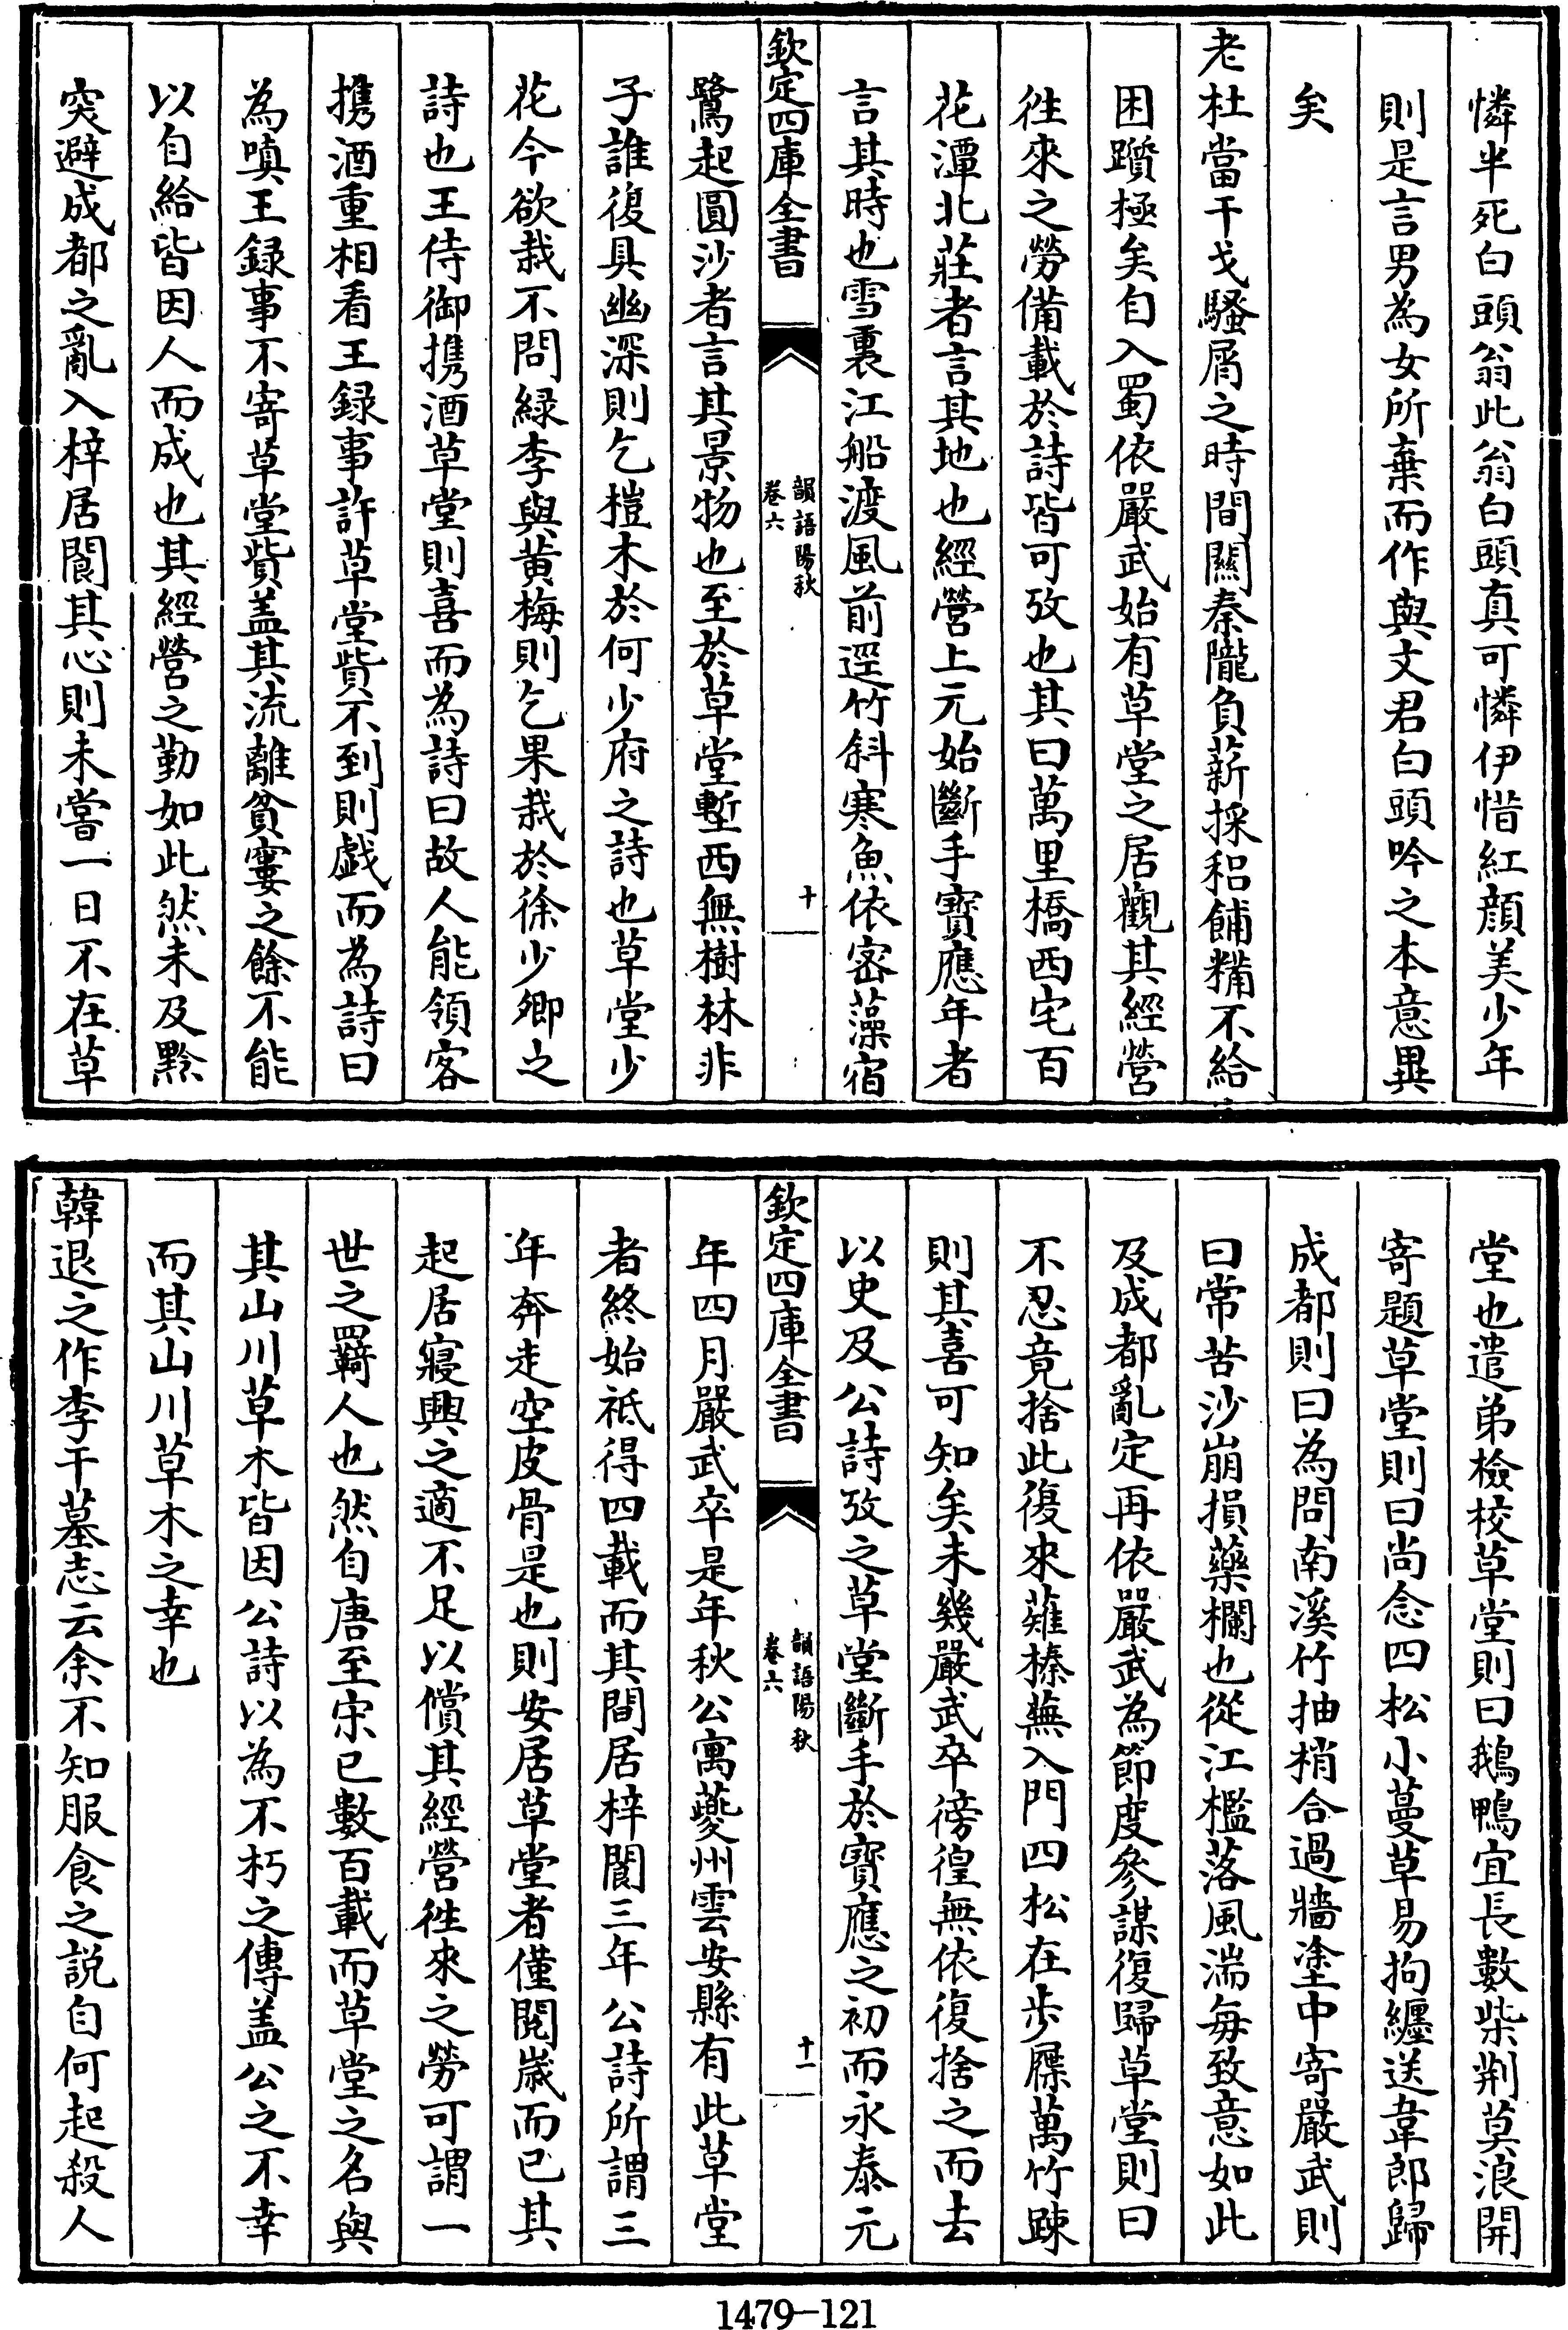 憐半死白頭翁此翁白頭真可憐伊惜紅顔美少年
則是言男為女所棄而作與文君白頭吟之本意異
矣
老杜當干戈騷屑之時間關秦隴負薪採梠餔糒不給
困躓極矣自入蜀依嚴武始有草堂之居觀其經營
徃來之勞備載於詩皆可攷也其曰萬里橋西宅百
花潭北莊者言其地也經營上元始斷手寶應年者
言其時也雪裏江船渡風前逕竹斜寒魚依密藻宿
欽定四庫全書
韻語陽秋
卷六
十
鷺起圓沙者言其景物也至於草堂塹西無樹林非
子誰復具幽深則乞榿木於何少府之詩也草堂少
花今欲栽不問緑李與黄梅則乞果栽於徐少卿之
詩也王侍御携酒草堂則喜而為詩曰故人能領客
携酒重相看王録事許草堂貲不到則戯而為詩曰
為嗔王録事不寄草堂貲盖其流離貧窶之餘不能
以自給皆因人而成也其經營之勤如此然未及黔
突避成都之亂入梓居閬其心則未嘗一日不在草
堂也遣弟檢校草堂則曰鵝鴨宜長數柴荆莫浪開
寄題草堂則曰尚念四松小蔓草易拘纒送韋郎歸
成都則曰為問南溪竹抽梢合過牆塗中寄嚴武則
曰常苦沙崩損藥欄也從江檻落風湍毎致意如此
及成都亂定再依嚴武為節度參謀復歸草堂則曰
不忍竟捨此復來薙榛蕪入門四松在步屧萬竹踈
則其喜可知矣未幾嚴武卒徬徨無依復捨之而去
以史及公詩攷之草堂斷手於寶應之初而永泰元
欽定四庫全書
韻語陽秋
卷六
十一
年四月嚴武卒是年秋公寓夔州雲安縣有此草堂
者終始祇得四載而其間居梓閬三年公詩所謂三
年奔走空皮骨是也則安居草堂者僅閱嵗而已其
起居寢興之適不足以償其經營徃來之勞可謂一
世之羇人也然自唐至宋已數百載而草堂之名與
其山川草木皆因公詩以為不朽之傳盖公之不幸
而其山川草木之幸也
韓退之作李干墓志云余不知服食之説自何起殺人
1479—121